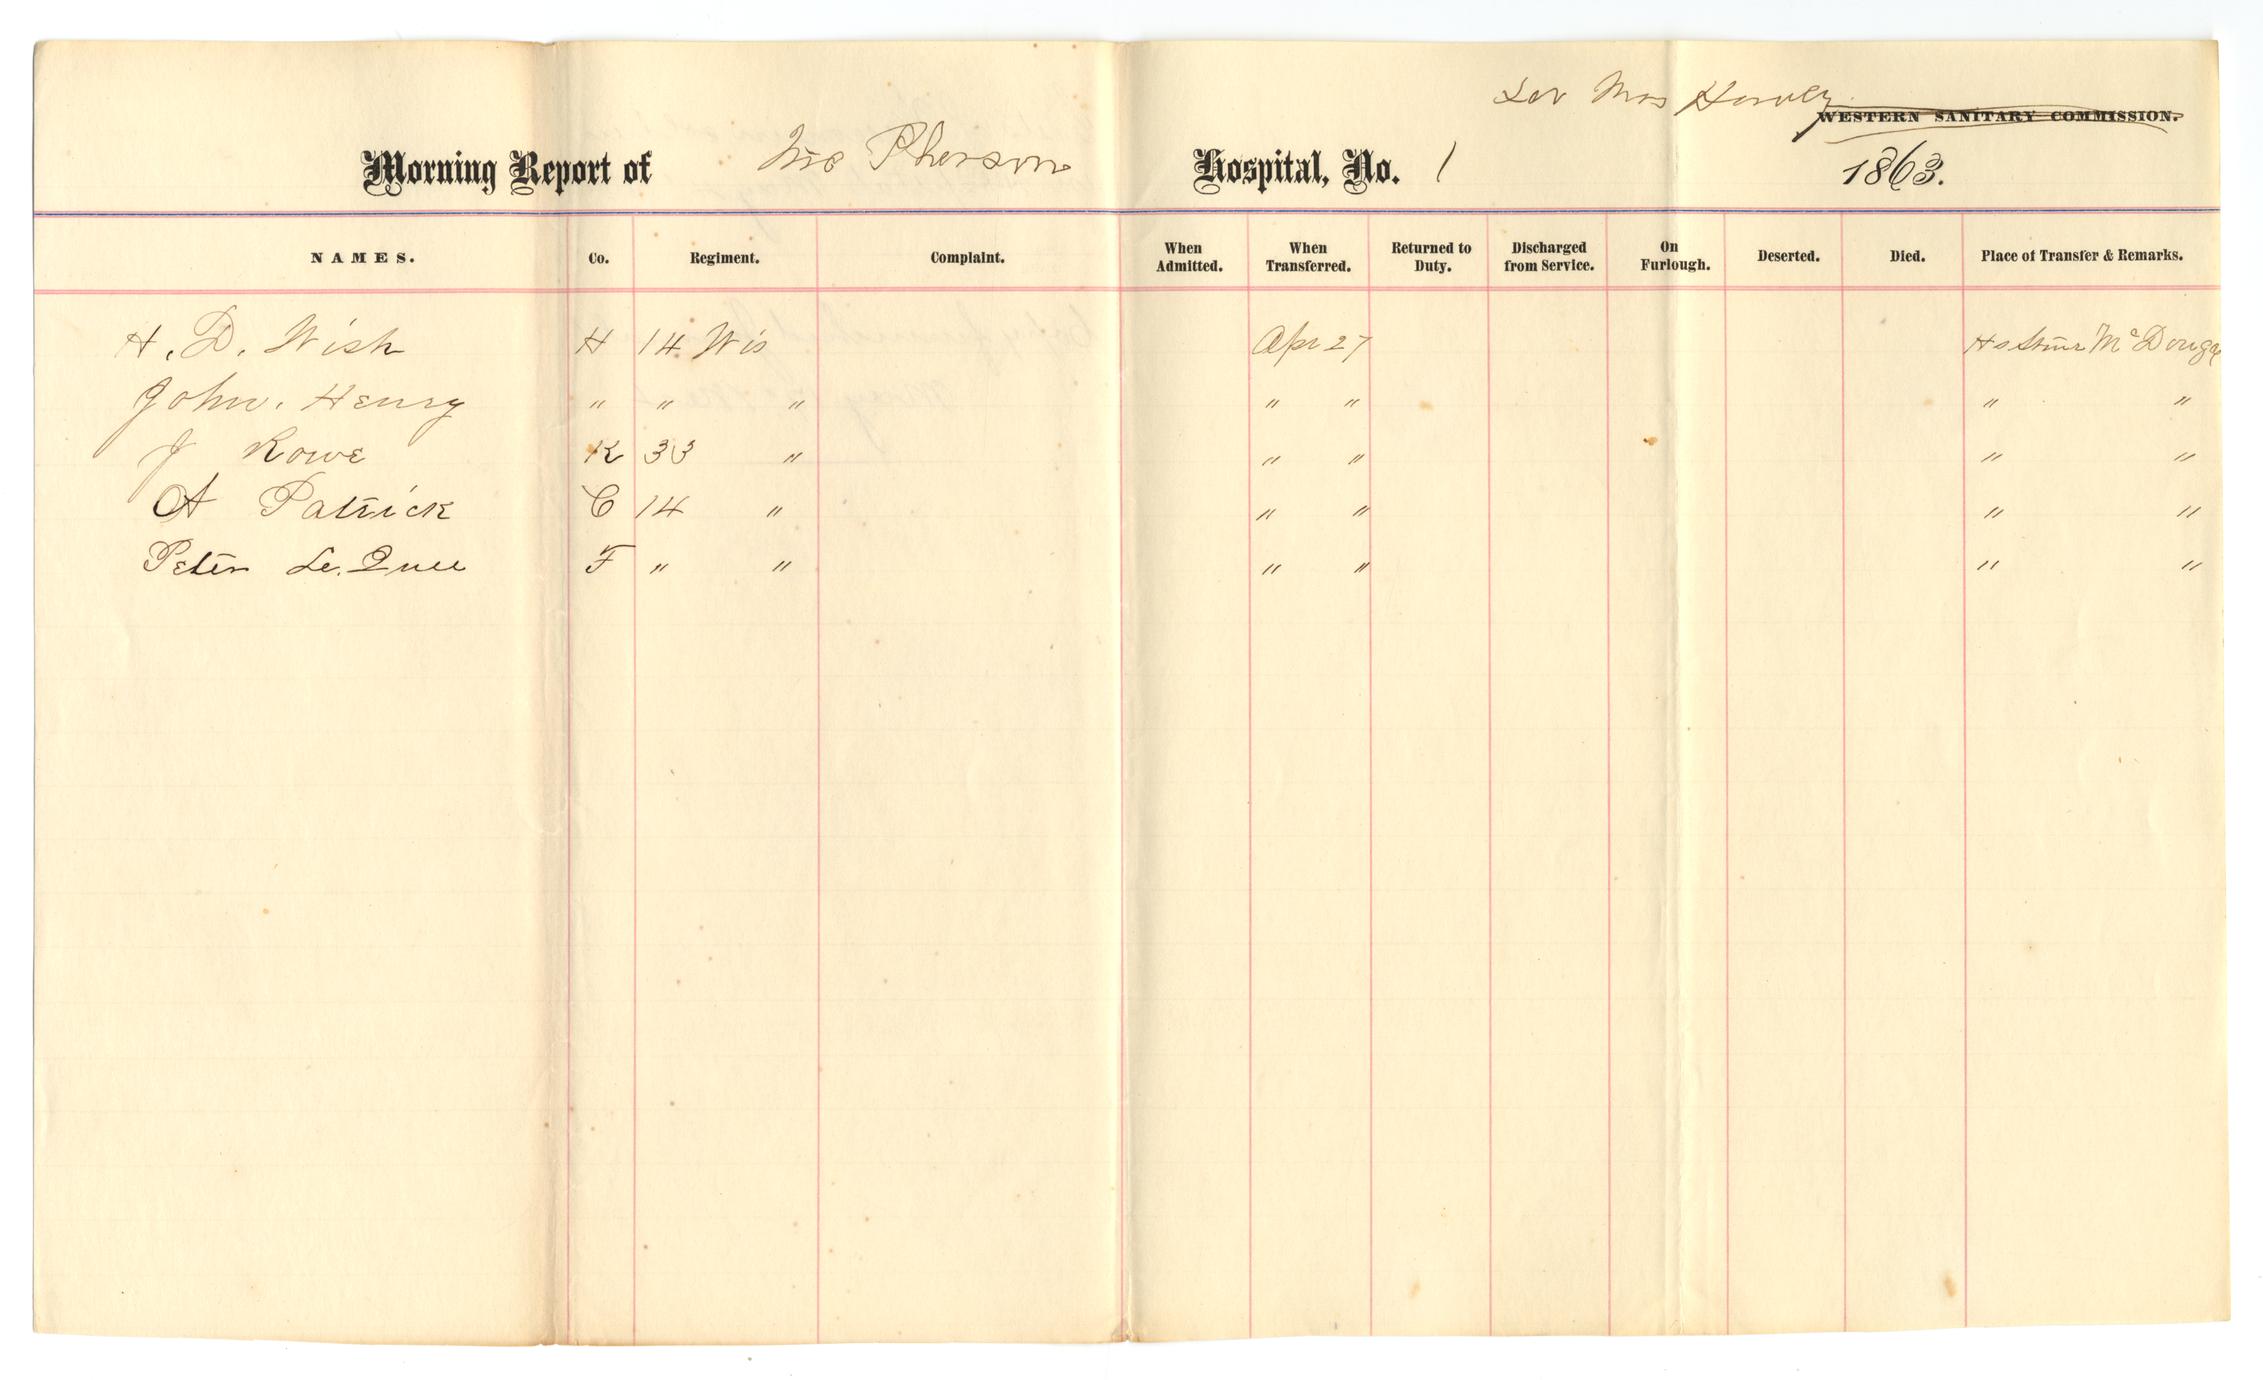 Mrs Harvey
WESTERN SANITARY COMMISSION.
Morning Report of Mc Pherson Hospital, No. 1 1863.
NAMES. Co. Regiment. Complaint. When Admitted. When Transferred. Returned to Duty. Discharged from Service. On Furlough. Deserted. Died. Place of Transfer & Remarks.
H. D. Wish H 14 Wis Apr 27 Hs Stmr McDouga
John. Henry " " " " " " "
J Rowe K 33 " " " " "
A Patrick C 14 " " " " "
Peter Le. Quee F " " " " " "